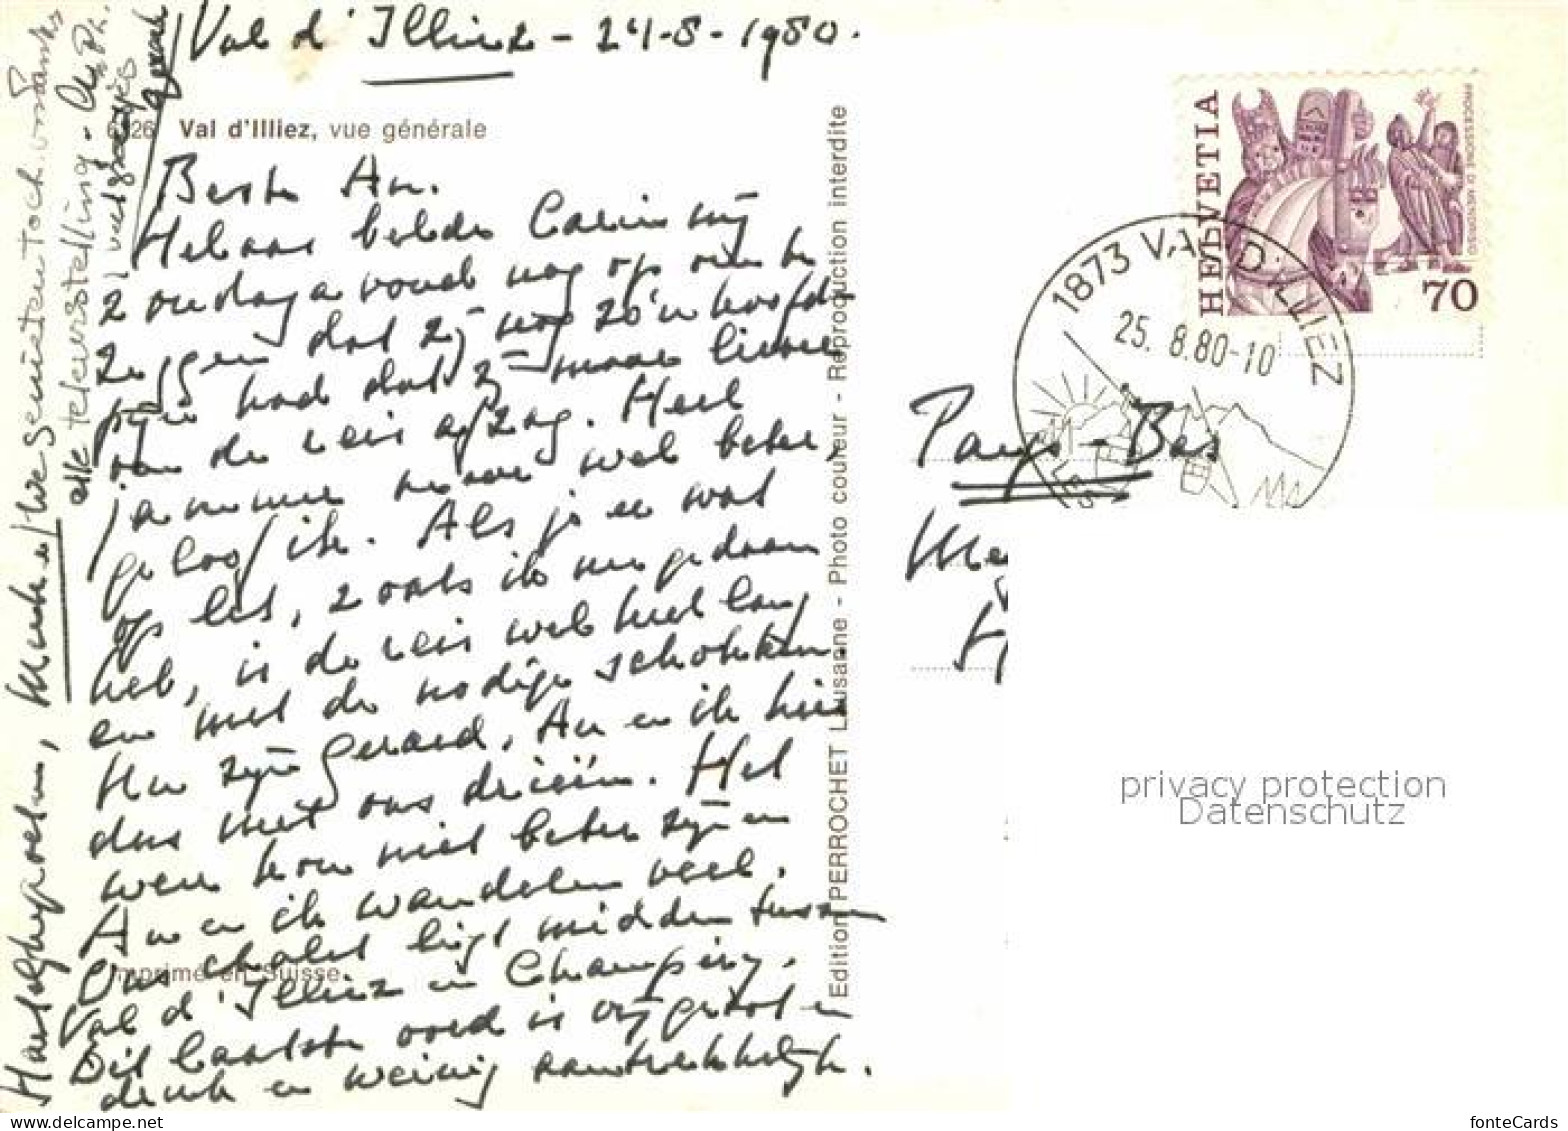 Val d'Illiez - 24-8-1980.
6326 Val d'Illiez, vue générale
Beste An.
Helaas belde Carien mij
zondagavond nog op om te
zeggen dat zij nog zo'n hoofd-
pijn had dat zij maar liever
van de reis afzag. Heel
jammer maar wel beter,
geloof ik. Als je er wat
op let, zoals ik nu gedaan
heb, is de reis wel heel lang
en met de nodige schokken.
Nu zijn Gerard, An en ik hier
dus met ons drieën. Het
weer kon niet beter zijn en
An en ik wandelen veel.
Ons chalet ligt midden tussen
Val d'Illiez en Champéry.
Dit laatste oord is erg groot en
druk en weinig aantrekkelijk.
Hartelijke groeten,
We genieten toch ondanks
alle teleurstelling - An Ph.
Gerard
Imprimé en Suisse
Edition PERROCHET Lausanne - Photo couleur - Reproduction interdite
HELVETIA
PROCESSIONE DI MENDRISIO
70
1873 VAL D'ILLIEZ
25.8.80-10
LES
Pays-Bas
privacy protection
Datenschutz
fonteCards